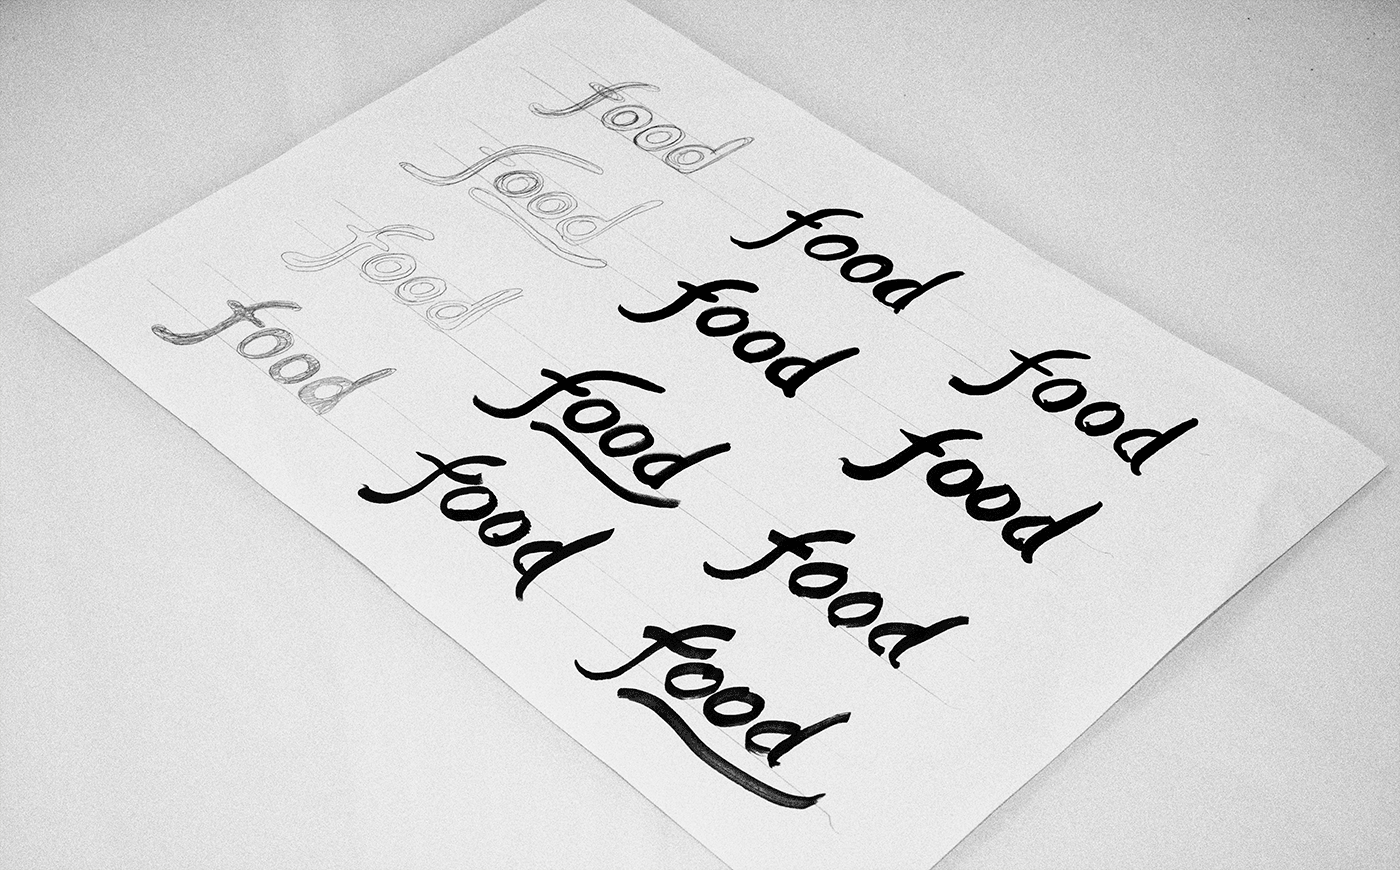 food food food
food food food
food food food
food food food